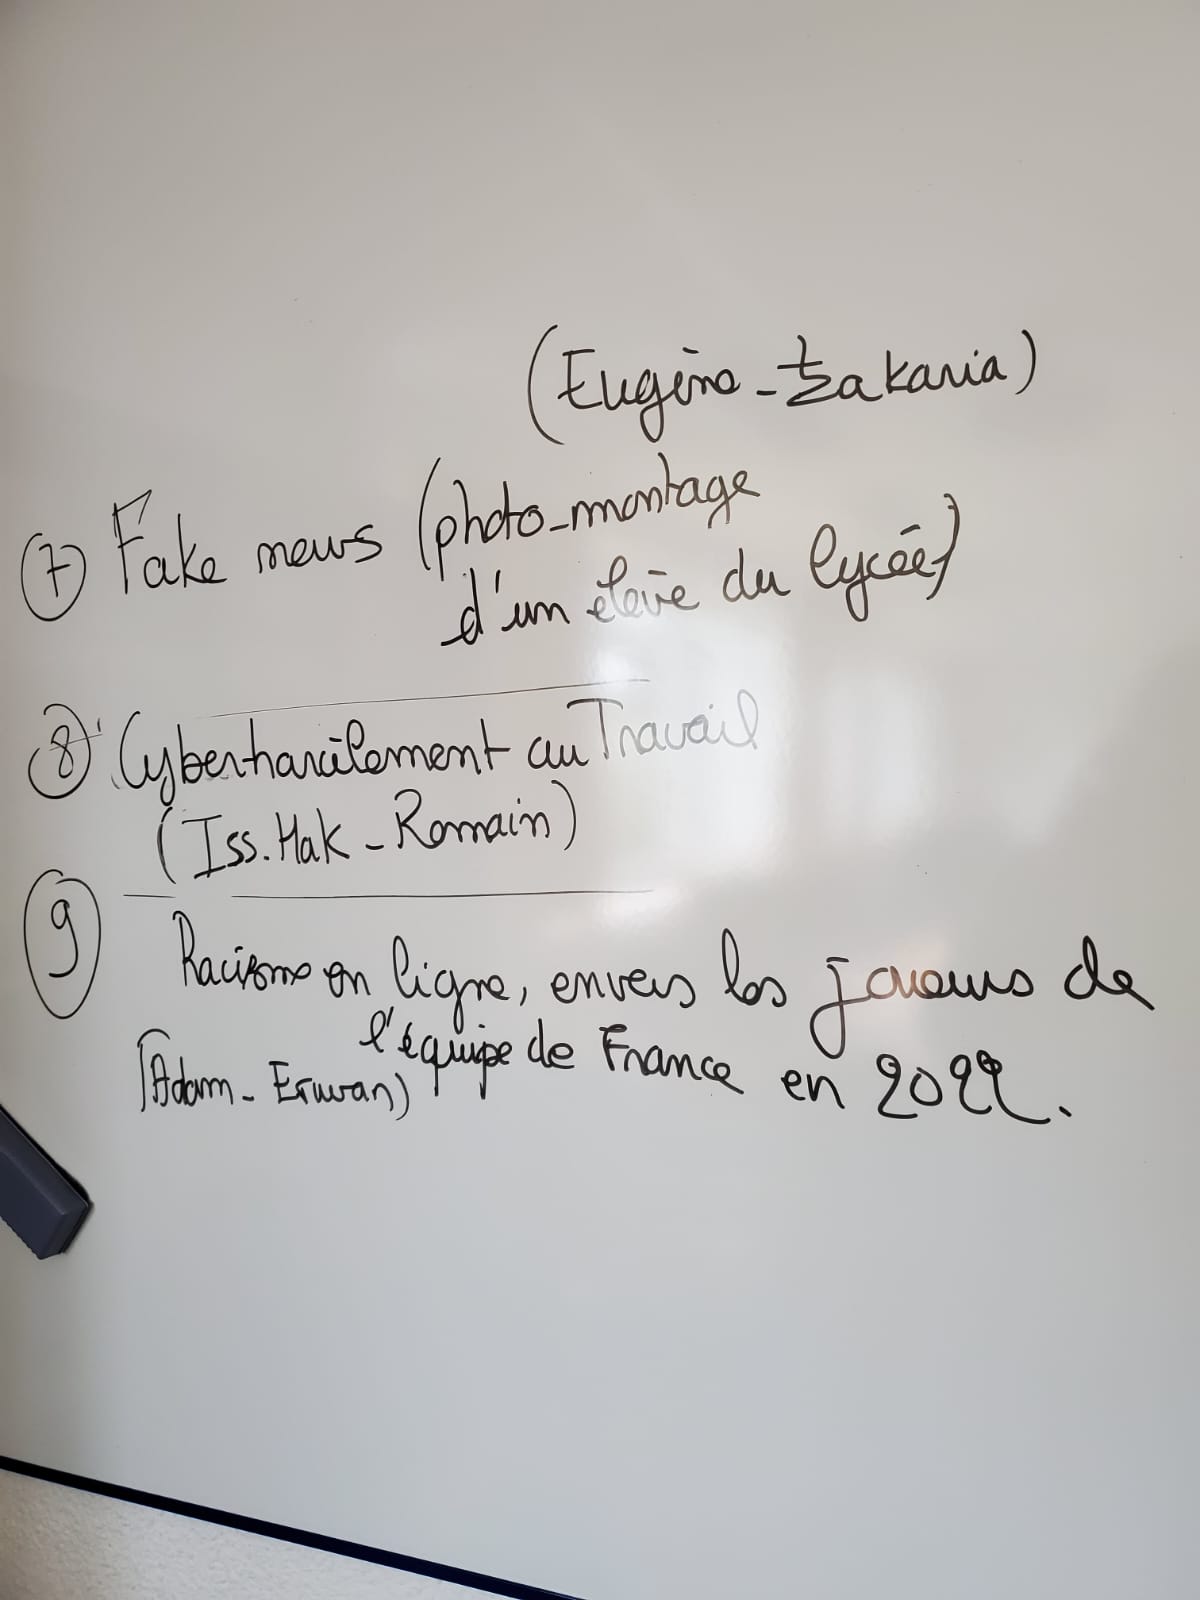 (Eugène - Zakaria)
7 Fake news (photo-montage
d'un élève du lycée)
8 Cyberharcèlement au Travail
(Iss.Hak - Romain)
9 Racisme en ligne, envers les joueurs de
l'équipe de France en 2022.
(Adam - Erwan)